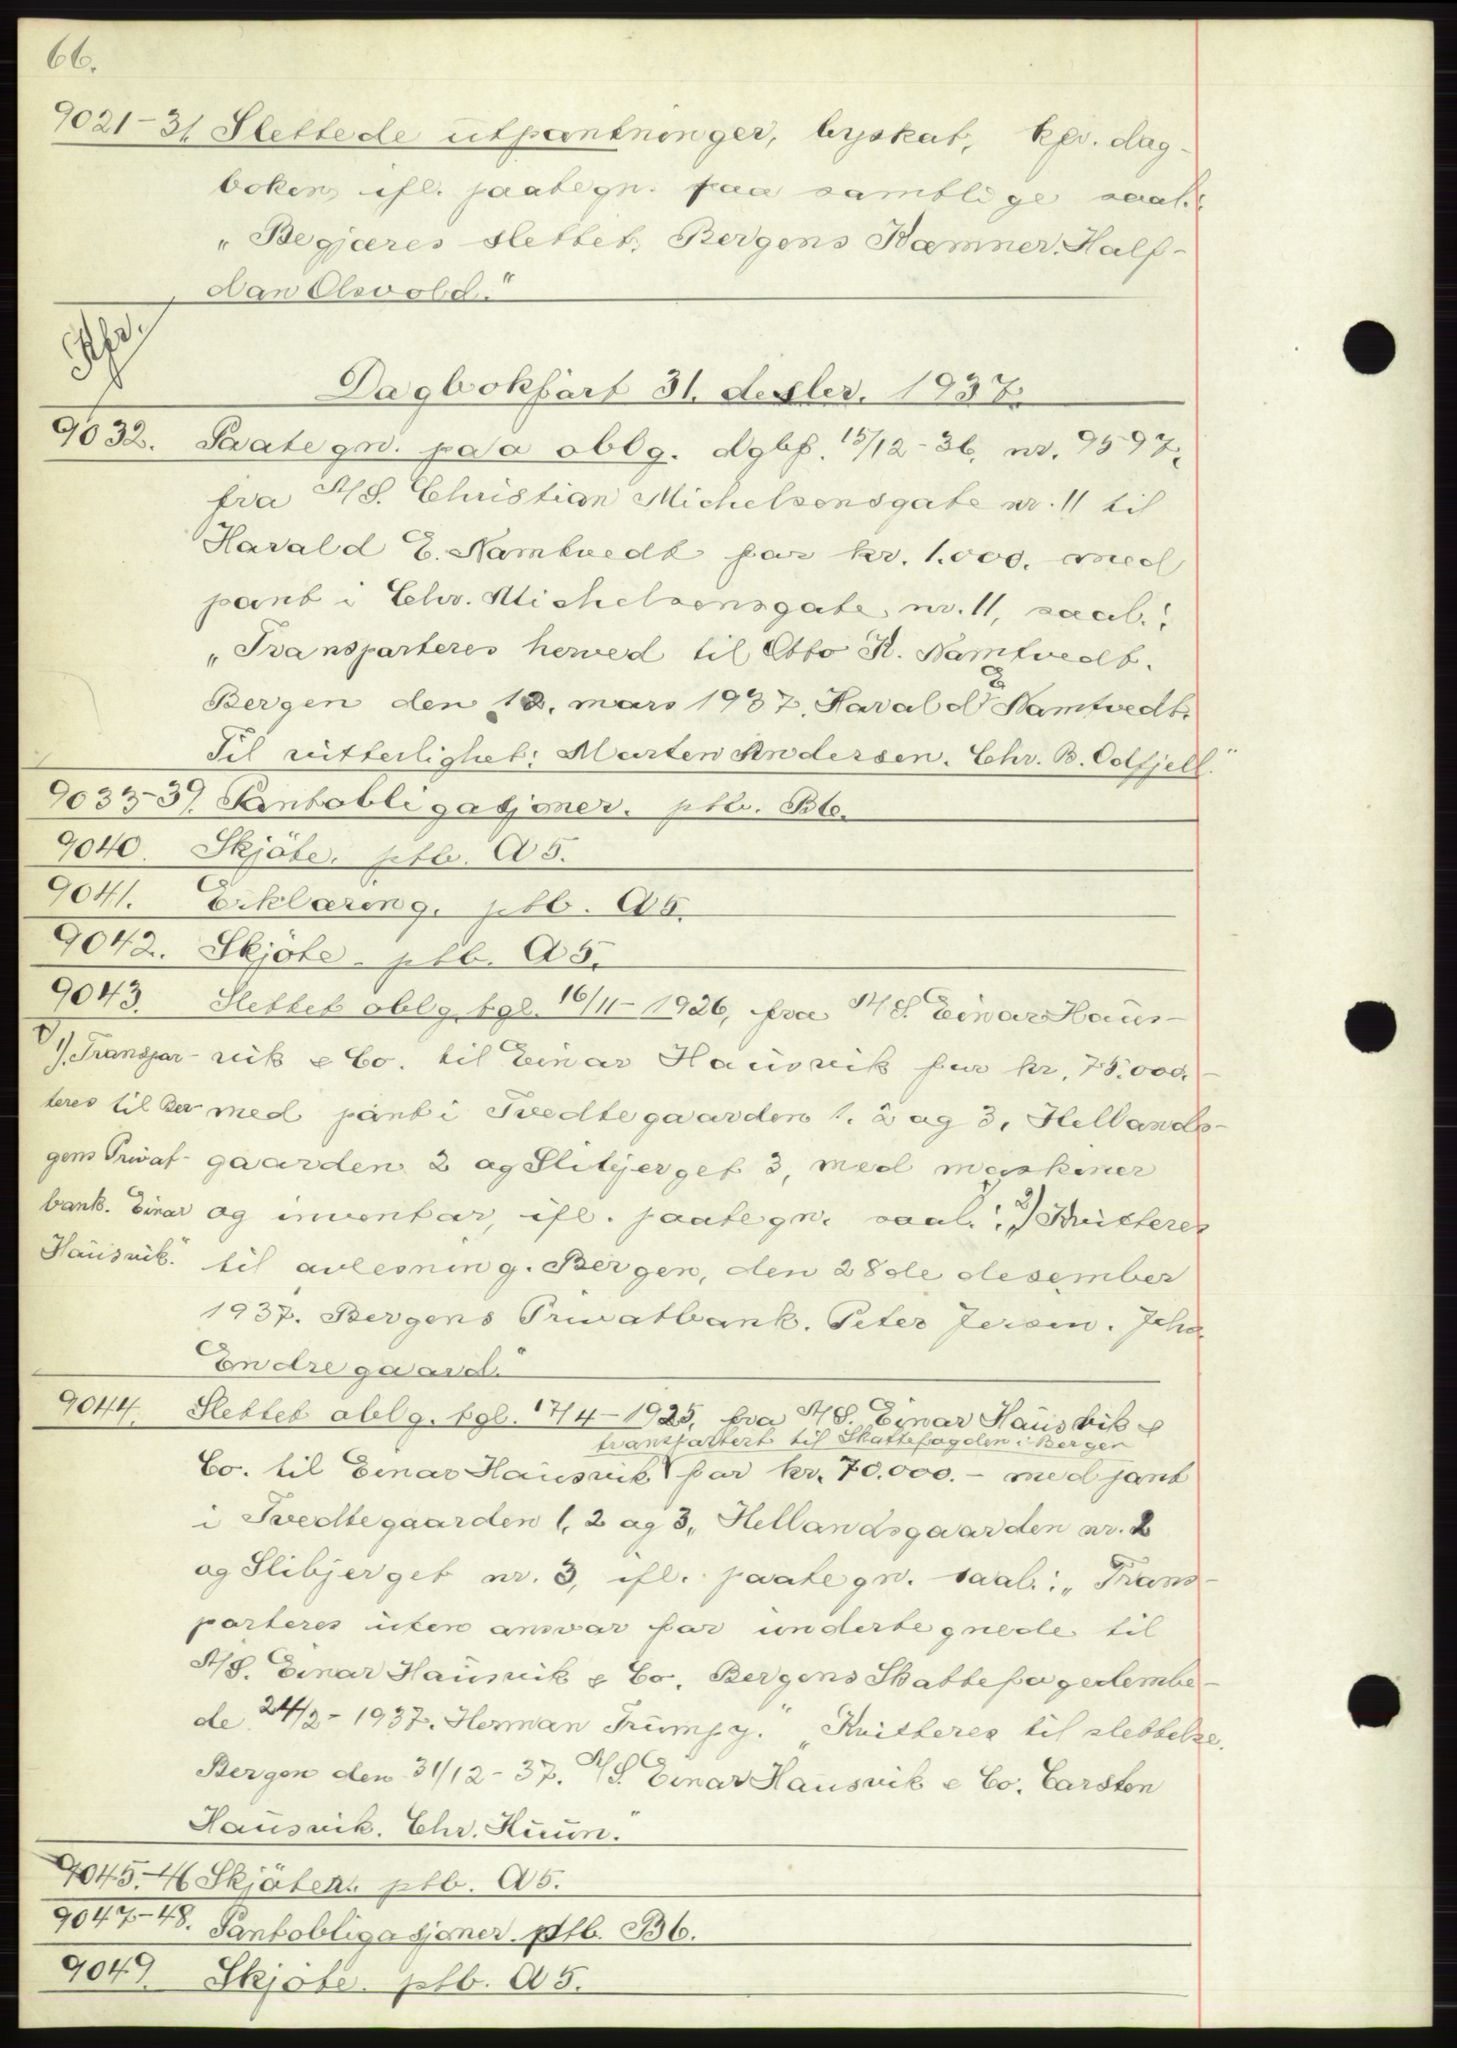 66.
9021-31. Slettede utpantninger, byskat, kfr. dag-
boken, ifl. paategn. paa samtlige saal.:
„Begjæres slettet. Bergens Kæmner. Half-
dan Olsvold."
Kfr.
Dagbokført 31. desbr. 1937.
9032. Paategn. paa oblg. dgbf. 15/12-36, nr. 9597,
fra A/S. Christian Michelsensgate nr. 11 til
Harald E. Namtvedt for kr. 1.000. med
pant i Chr. Michelsensgate nr. 11, saal.:
„Transporteres herved til Otto K. Namtvedt.
Bergen den 12. mars 1937. Harald E Namtvedt.
Til vitterlighet: Marten Andersen. Chr. B. Oolfjell."
9033-39. Pantobligasjoner. ptb. B6.
9040. Skjöte. ptb. A5.
9041. Erklæring. ptb. A5.
9042. Skjöte. ptb. A5.
9043. Slettet oblg. tgl. 16/11-1926, fra A/S. Einar Haus-
vik & Co. til Einar Hausvik for kr. 75.000.-
med pant i Tvedtegaarden 1, 2 og 3, Hellands-
gaarden 2 og Slibjerget 3, med maskiner
og inventar, ifl. paategn. saal.: 2) „Kvitteres
til avlesning. Bergen, den 28de desember
1937. Bergens Privatbank. Peter Jersin. Joh.
Endregaard."
„1). Transpor-
teres til Ber-
gens Privat-
bank. Einar
Hausvik."
9044. Slettet oblg. tgl. 17/4-1925, fra A/S. Einar Hausvik &
transportert til Skattefogden i Bergen
Co. til Einar Hausvik for kr. 70.000.- med pant
i Tvedtegaarden 1, 2 og 3, Hellandsgaarden nr. 2
og Slibjerget nr. 3, ifl. paategn. saal.: „Trans-
porteres uten ansvar for undertegnede til
A/S. Einar Hausvik & Co. Bergens Skattefogedembe-
de 24/2-1937. Herman Trumpy." „Kvitteres til slettelse.
Bergen den 31/12-37. A/S. Einar Hausvik & Co. Carsten
Hausvik. Chr. Huun."
9045-46 Skjöter. ptb. A5.
9047-48. Pantobligasjoner. ptb. B6.
9049. Skjöte. ptb. A5.